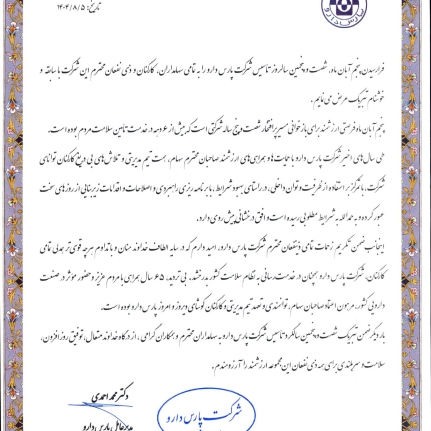 تاریخ: ۱۴۰۴/۸/۵
پارس دارو
فرارسیدن پنجم آبان ماه، شصت و پنجمین سالروز تاسیس شرکت پارس دارو را به تمامی سهامداران، کارکنان و ذی نفعان محترم این شرکت با سابقه و
خوشنام تبریک عرض می نمایم.
پنجم آبان ماه فرصتی ارزشمند برای بازخوانی مسیر پرافتخار شصت و پنج ساله شرکتی است که بیش از ۶ دهه در خدمت تأمین سلامت مردم بوده است.
طی سال های اخیر شرکت پارس دارو با حمایت ها و همراهی های ارزشمند صاحبان محترم سهام، همت تیم مدیریتی و تلاش های بی دریغ کارکنان توانای
شرکت، با تمرکز بر استفاده از ظرفیت و توان داخلی، در راستای بهبود شرایط، با برنامه ریزی راهبردی و اصلاحات و اقدامات زیربنایی از روزهای سخت
عبور کرده و بحمدالله به شرایط مطلوبی رسیده است و افق درخشانی پیش روی دارد.
اینجانب ضمن تکریم زحمات تمامی ذینفعان محترم شرکت پارس دارو، امید دارم که در سایه الطاف خداوند منان و با تداوم هرچه قوی تر همدلی تمامی
کارکنان، شرکت پارس دارو همچنان در خدمت رسانی به نظام سلامت کشور بدرخشد. بی تردید، ۶۵ سال همراهی با مردم عزیز و حضور موثر در صنعت
دارویی کشور، مرهون اعتماد صاحبان سهام، توانمندی و تعهد تیم مدیریتی و کارکنان کوشای دیروز و امروز پارس دارو بوده است.
بار دیگر ضمن تبریک شصت و پنجمین سالگرد تاسیس شرکت پارس دارو به سهامداران محترم و همکاران گرامی، از درگاه خداوند متعال، توفیق روز افزون،
سلامت و سربلندی برای همه ذی نفعان این مجموعه ارزشمند را آرزومندم.
دکتر محمد احمدی
مدیرعامل پارس دارو
شرکت پارس دارو